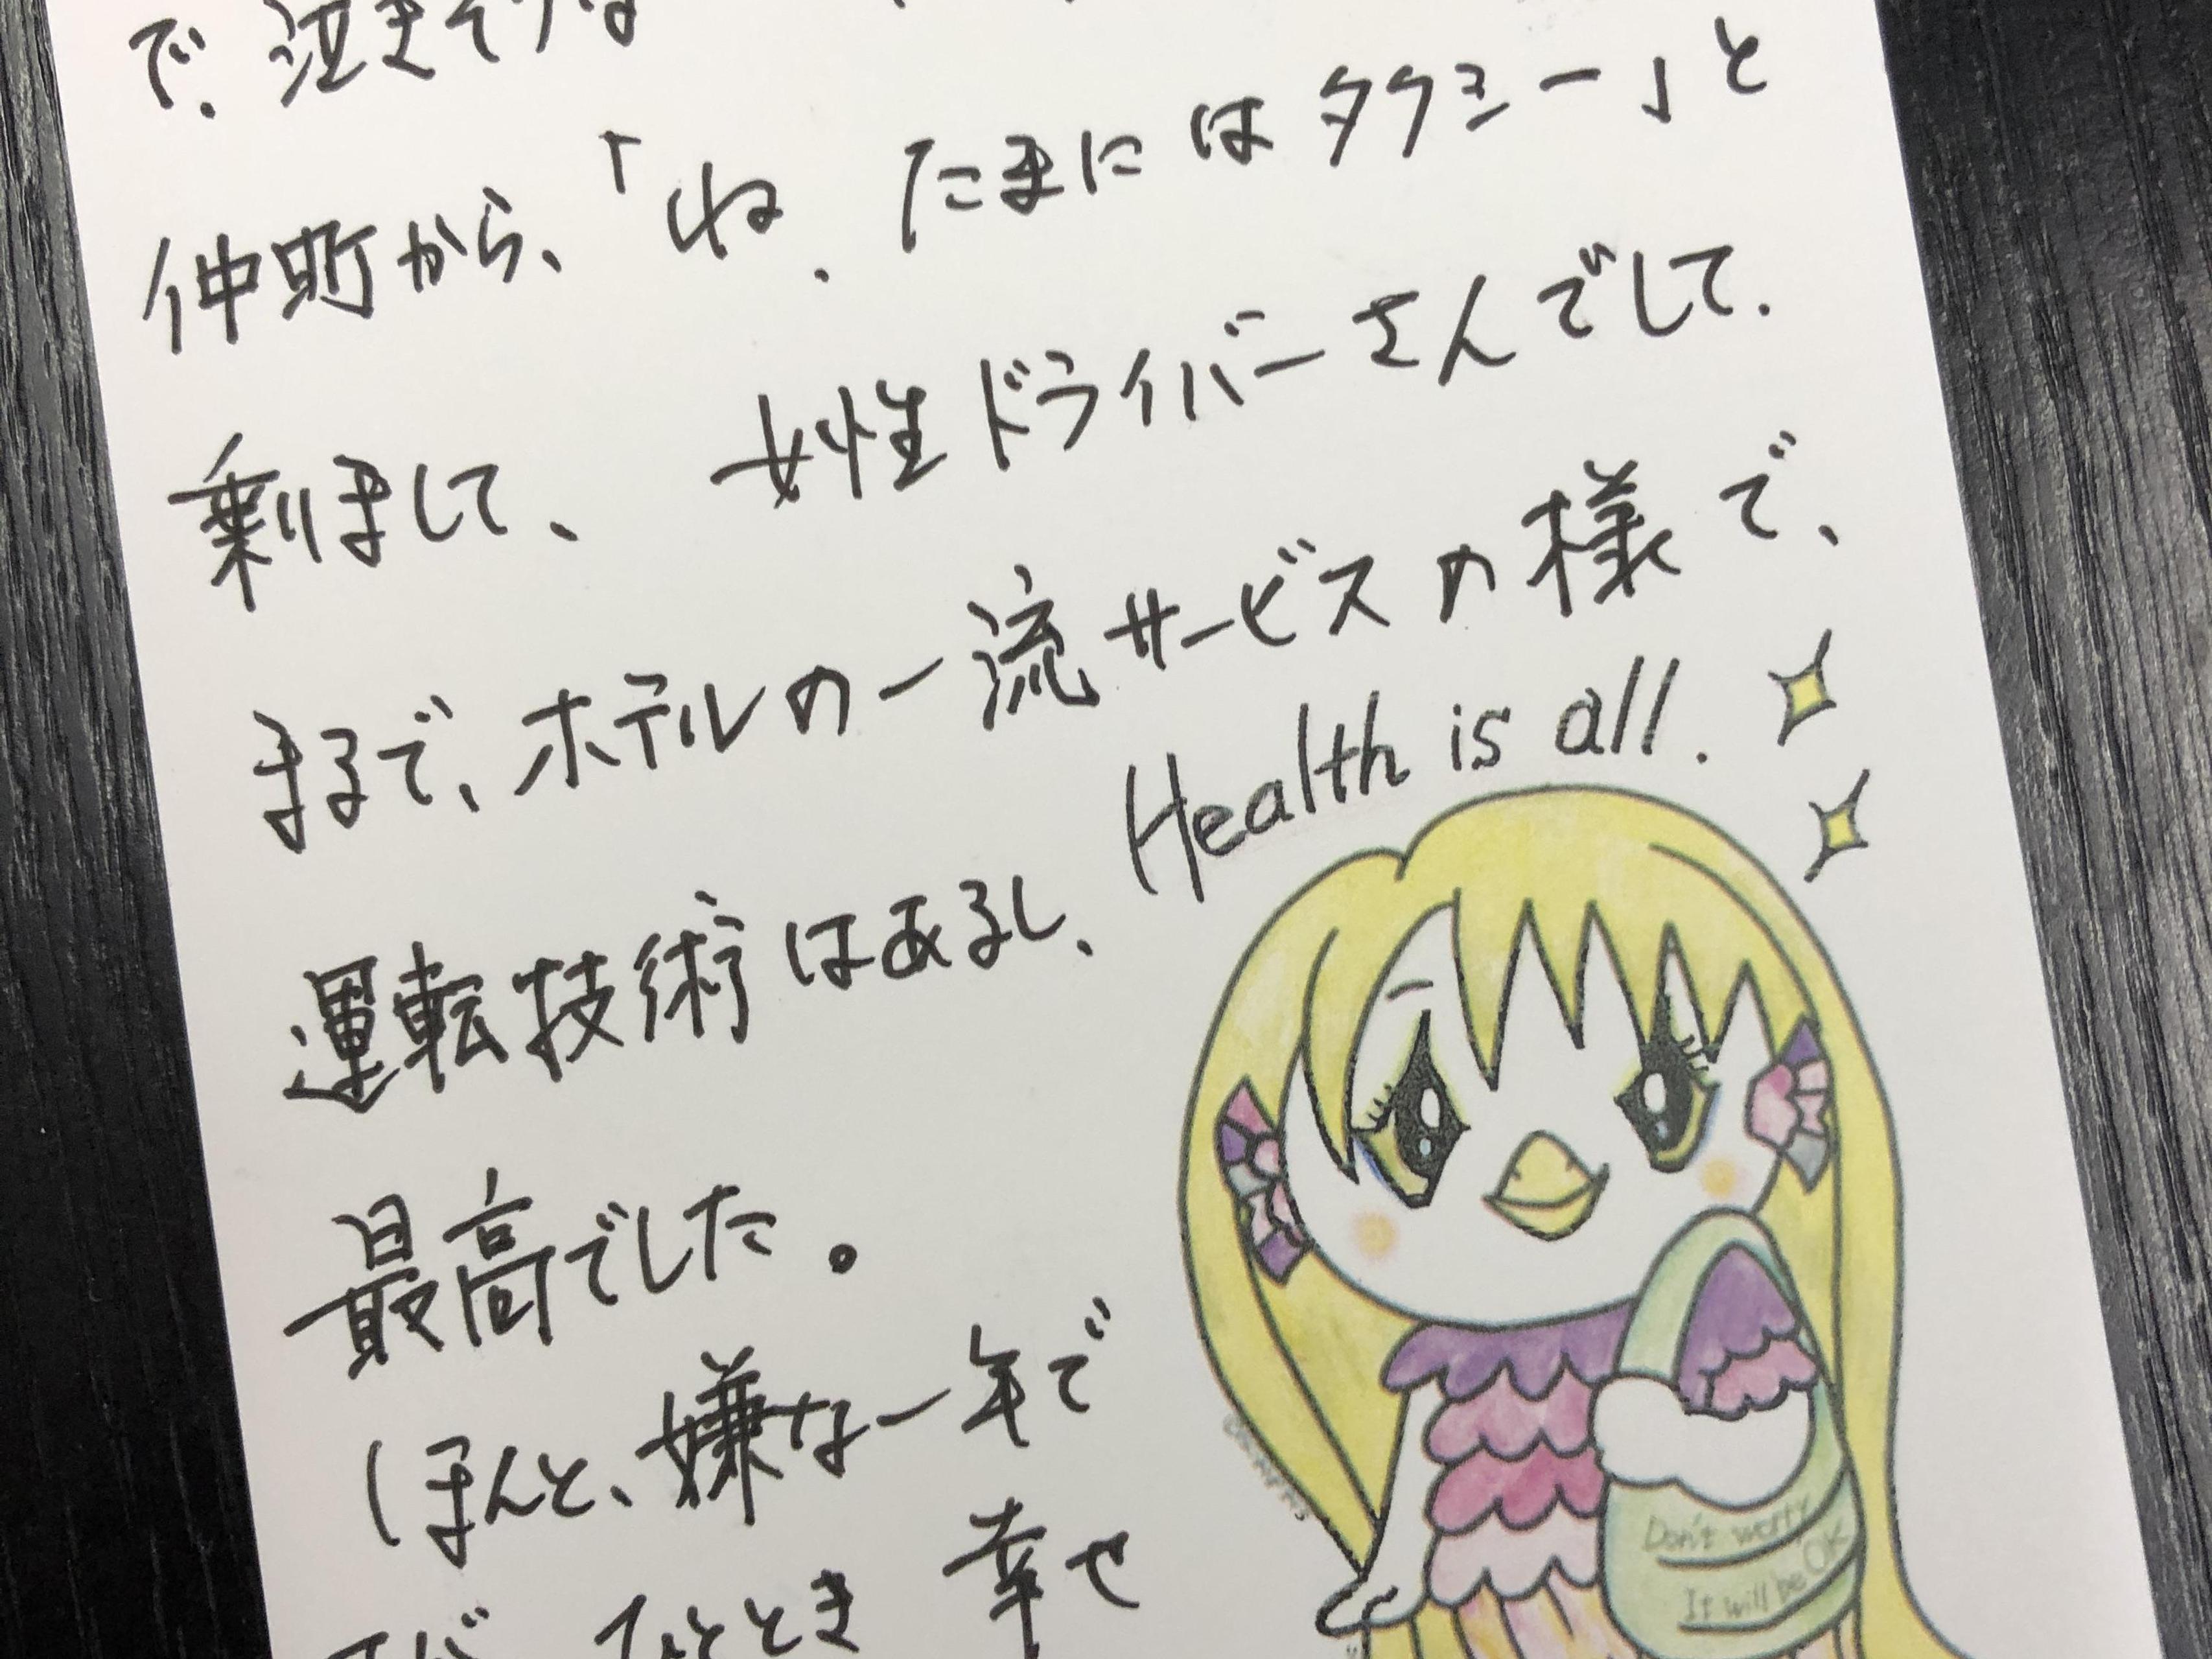 で、泣きそうな
仲町から、「ね、たまにはタクシー」と
乗りまして、 女性ドライバーさんでして、
まるで、ホテルの一流サービスの様で、
運転技術はあるし、
最高でした。
ほんと、嫌な一年で
ひととき 幸せ
Health is all.
Don't worry
It will be OK